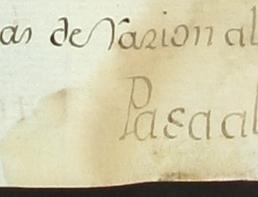 as de Varion al
Pasaal